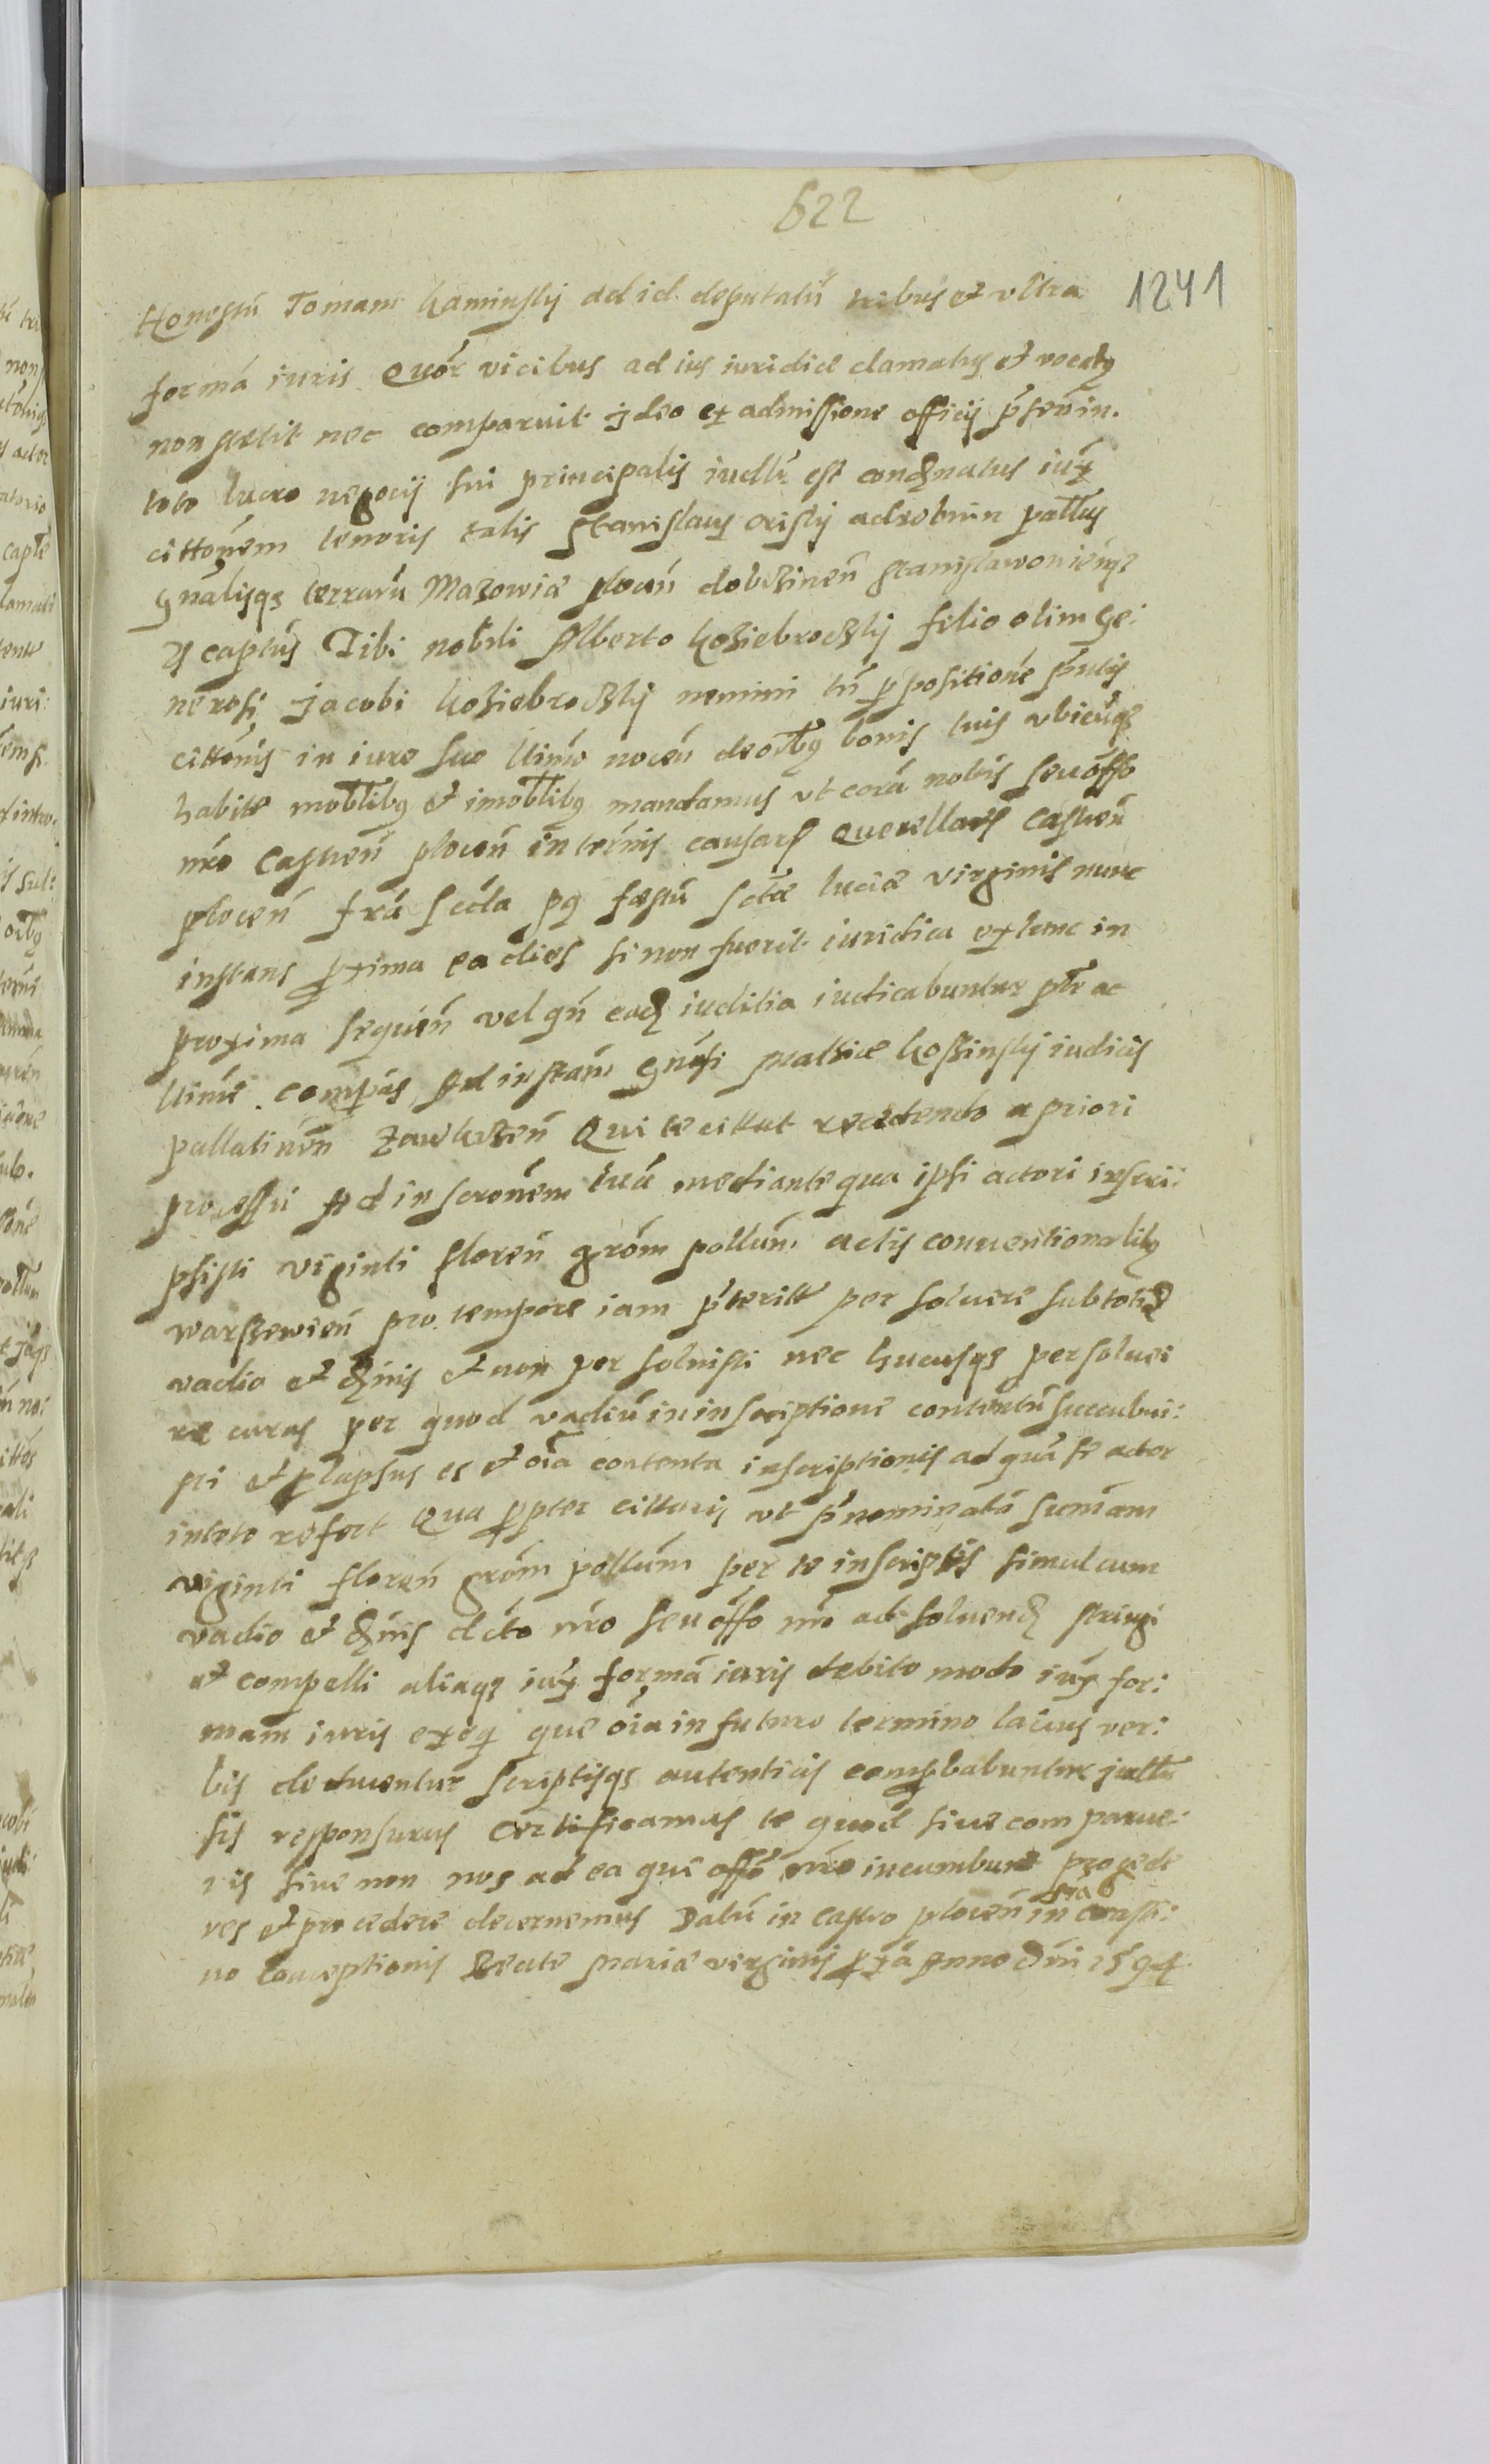 622
1241
Honestū Tomam Kaminsky ad id deputatū tribus et vltra
formá iuris quor vicibus ad ius iuridice clamatus et vocatus
non stetit nec comparuit Jdeo ex admissione officij
toto lucro negocij sui principalis est condnatus iux
cittonem tenoris talis Stanislaus
gnalisqz terraru Mazowie plocen dobrzinen
captus Tibi nobili Alberto Koziebrodzky filio olim Ge:
nerosi Jacobi Koziebrodzky nemini in ppositione
cittonis in iure suo nocen de oibus bonis tuis vbicuqz
habitis moblibus et imoblibus mandamus vt corá nobis seu offo
nro Castren plocen in terminis causarum querellarum Castren
plocen frá secda post festū sctae Lucie virginis nunc
instans pxima ea dies si non fuerit iuridica extunc in
proxima sequen vel qn ead iuditia iudicabuntur ptr ac
compas Ad instam gnosi Mathie Kossinsky iudicis
pallatinen Zawkrzen Qui te cittat recedendo a priori
processu Ad inscronem tuá mediante qua ipsi actori inscri:
psisti viginti floren grom pollum actis conuentionalibus
warszewien pro tempore iam pterito per soluere sub
vadio et dnis et non per soluisti nec hucusqz persolue
re curas per quod vadiū in inscriptione contentū succubui:
sti et plapsus es et oia contenta inscriptionis ad quá se actor
in toto refert Qua ppter cittaris vt pnominatá sumam
viginti floren grom pollum per te inscriptis simul cum
vadio et dnis dcto nro seu offo nro ad soluend stringi
et compelli aliaqz iux formá iuris debito modo iux for:
mam iuris exeq que oia in futuro termino lacius ver:
bis deducentur scriptisqz autenticis compbabuntur
sis responsurus Certificamus te quod siue comparue:
ris siue non nos ad ea que offo nro incumbunt
res et procedere decernemus Datū in Castro plocen frá in crasti:
no Conceptionis Beate Marie virginis pxá Anno dni 1594